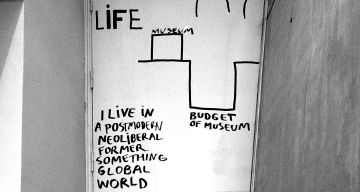 LIFE
MUSEUM
BUDGET
OF MUSEUM
I LIVE IN
A POSTMODERN
NEOLIBERAL
FORMER.
SOMETHING
GLOBAL
WORLD